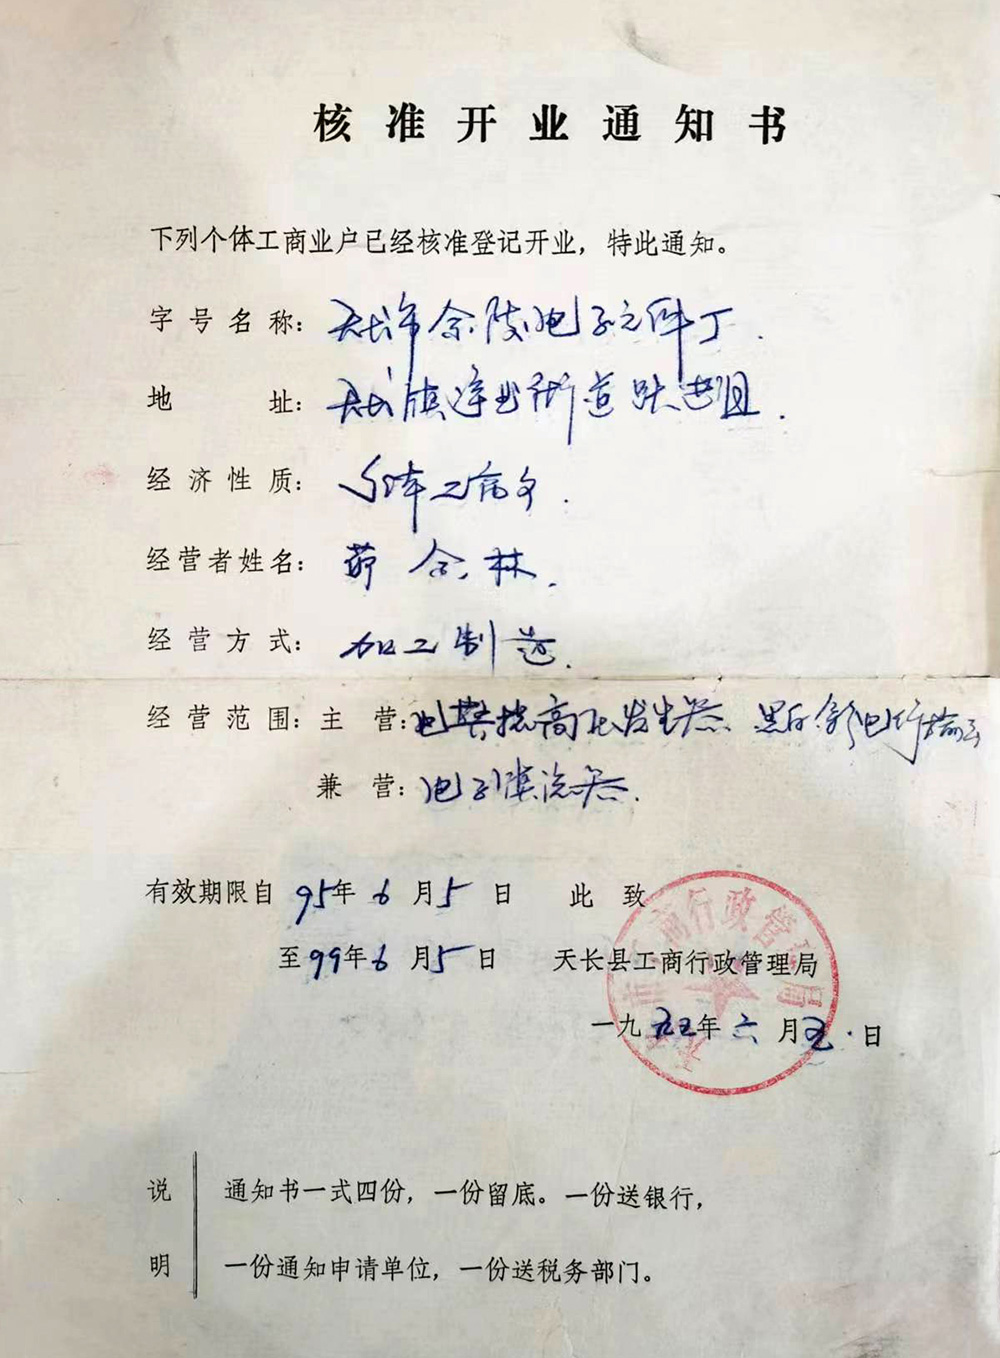 核准开业通知书
下列个体工商业户已经核准登记开业，特此通知。
字号名称：天长市余陵电子元件厂.
地 址：天长镇连兴街道跃进组.
经济性质：个体工商户.
经营者姓名：茆合林.
经营方式：加工制造.
经营范围：主 营：电 高压发生器、黑白
兼 营：电子 器.
有效期限自 95年 6 月 5 日 此 致
至 99年 6 月 5 日 天长县工商行政管理局
一九九五年 六 月 五 日
说明 通知书一式四份，一份留底。一份送银行，
一份通知申请单位，一份送税务部门。
天长市工商行政管理局